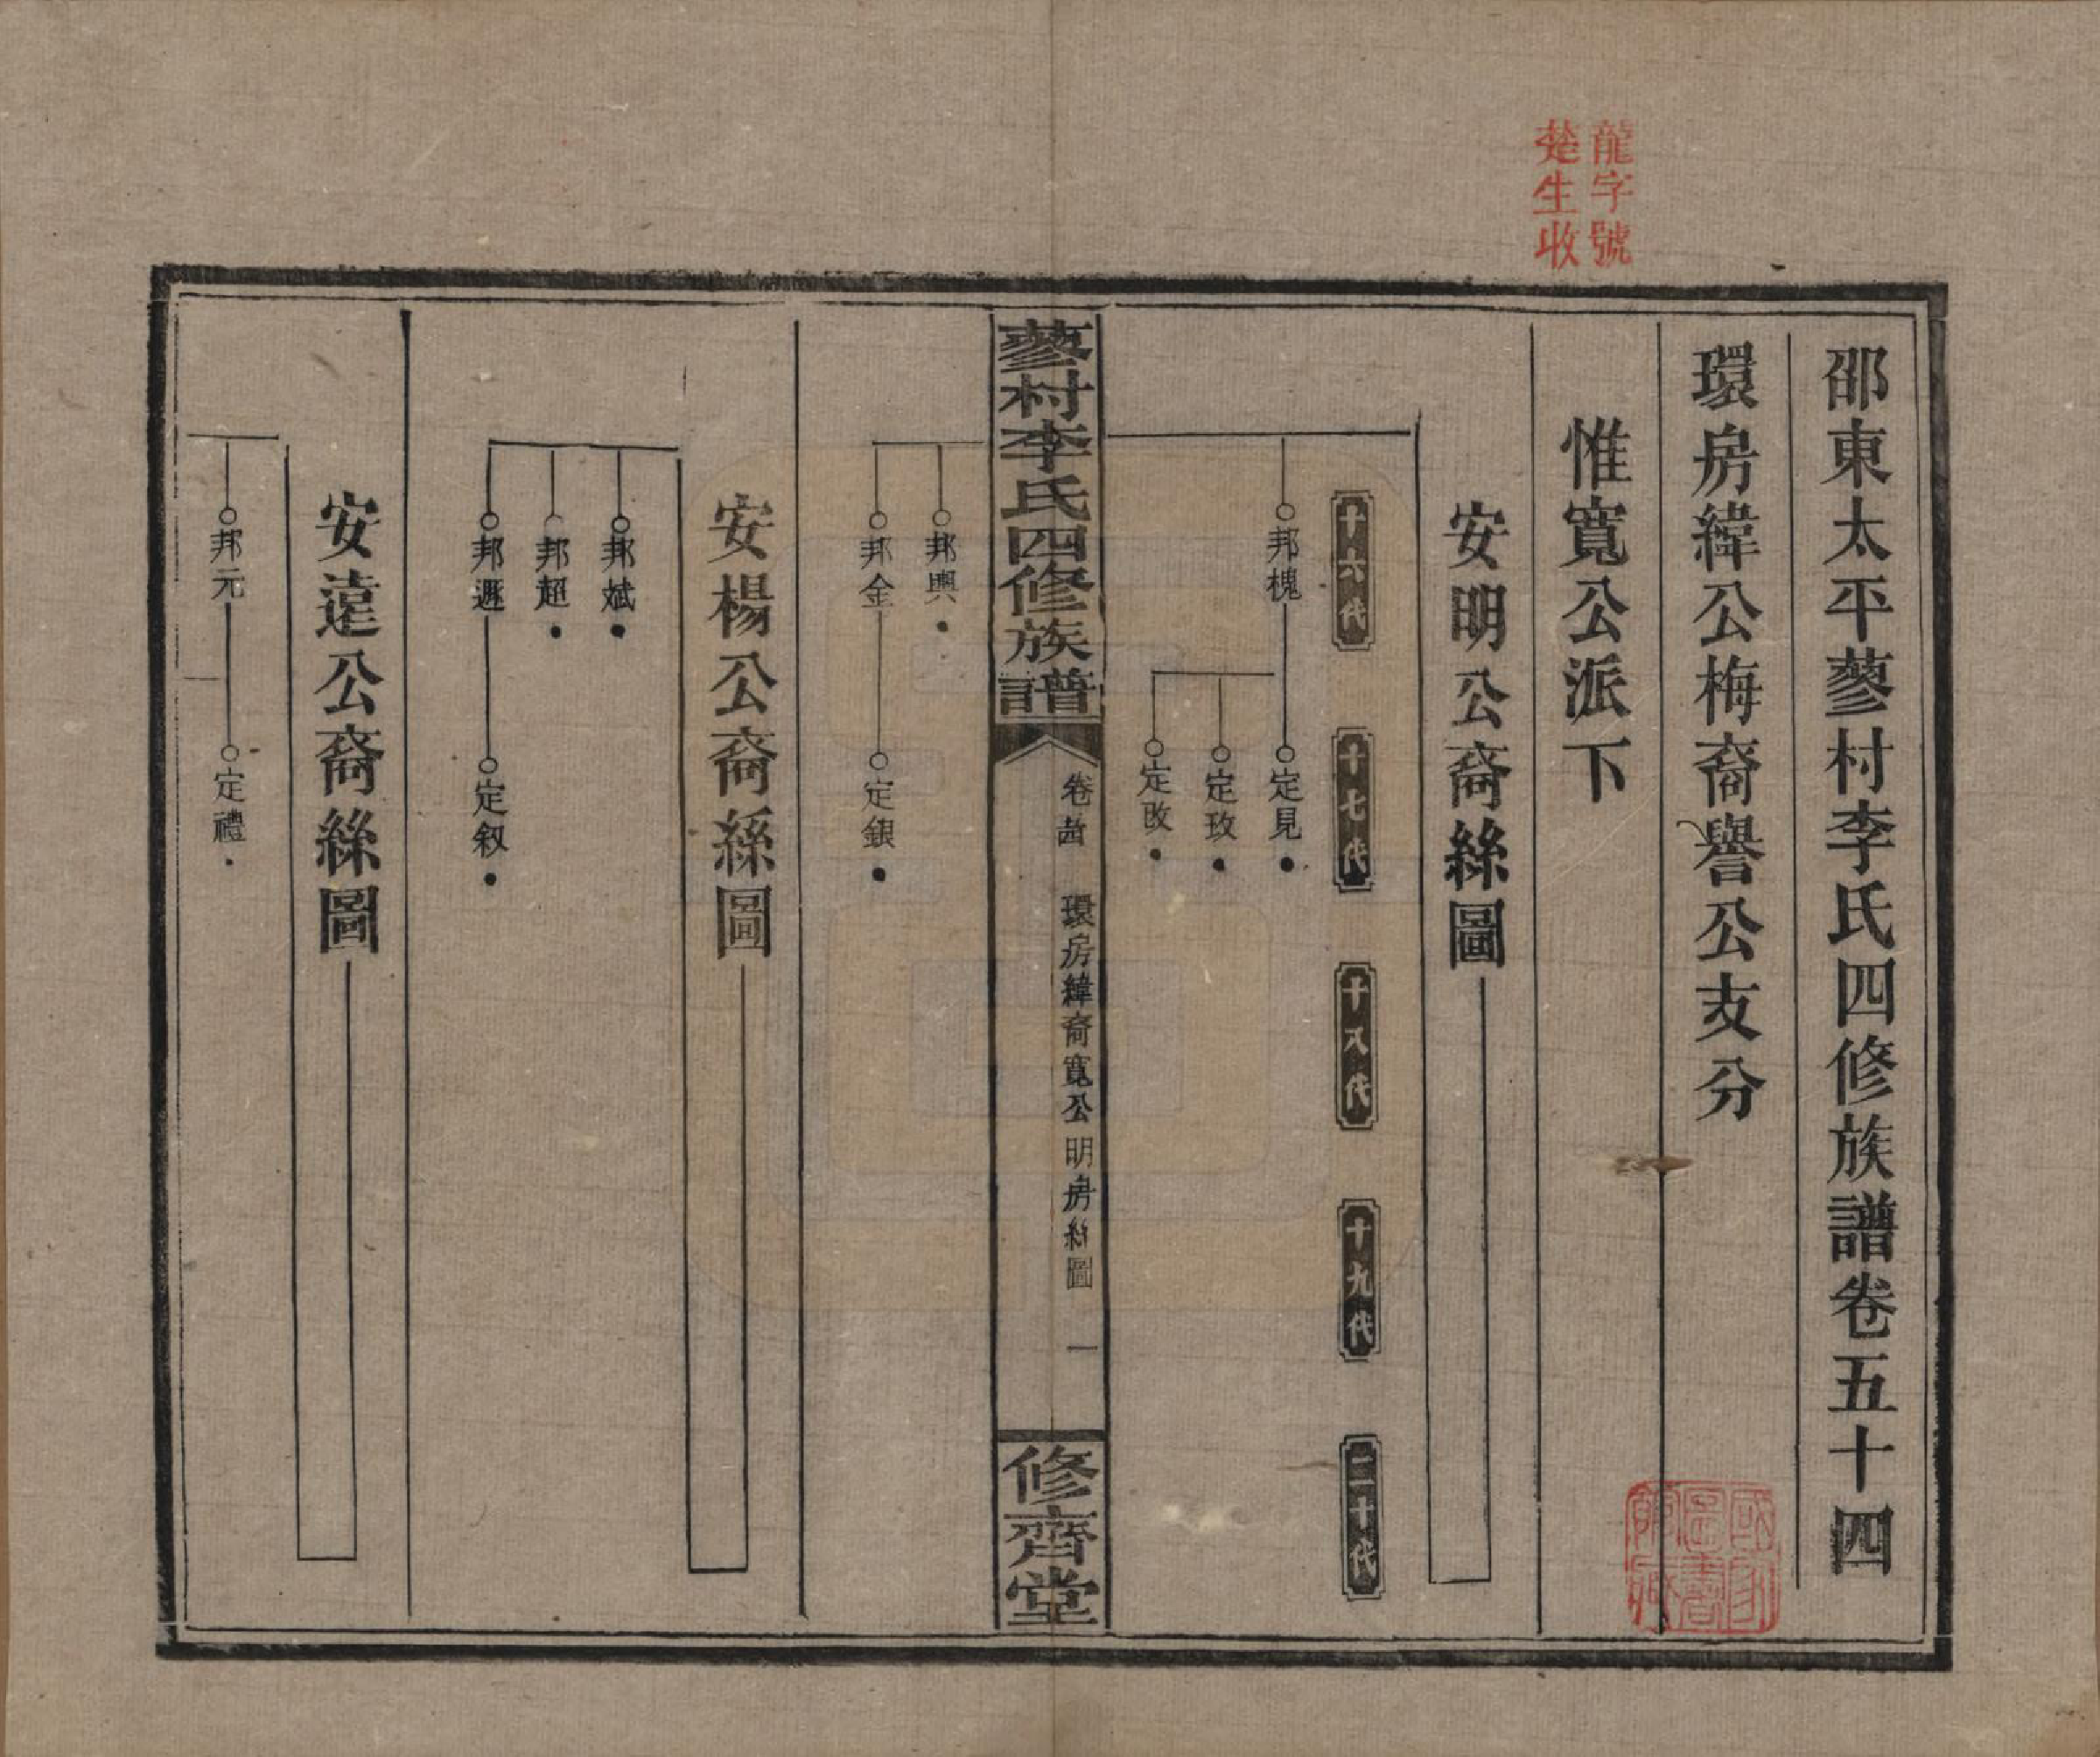 龍字號
楚生收
邵東太平蓼村李氏四修族譜卷五十四
環房緯公梅裔譽公支分
惟寬公派下
安明公裔絲圖
十六代
十七代
十八代
十九代
二十代
邦槐
定見
定玫
定改
蓼村李氏四修族譜
環房緯裔寬公明房絲圖
一
修齊堂
邦興
邦金
定銀
安楊公裔絲圖
邦斌
邦超
邦遜
定叙
安遠公裔絲圖
邦元
定禮